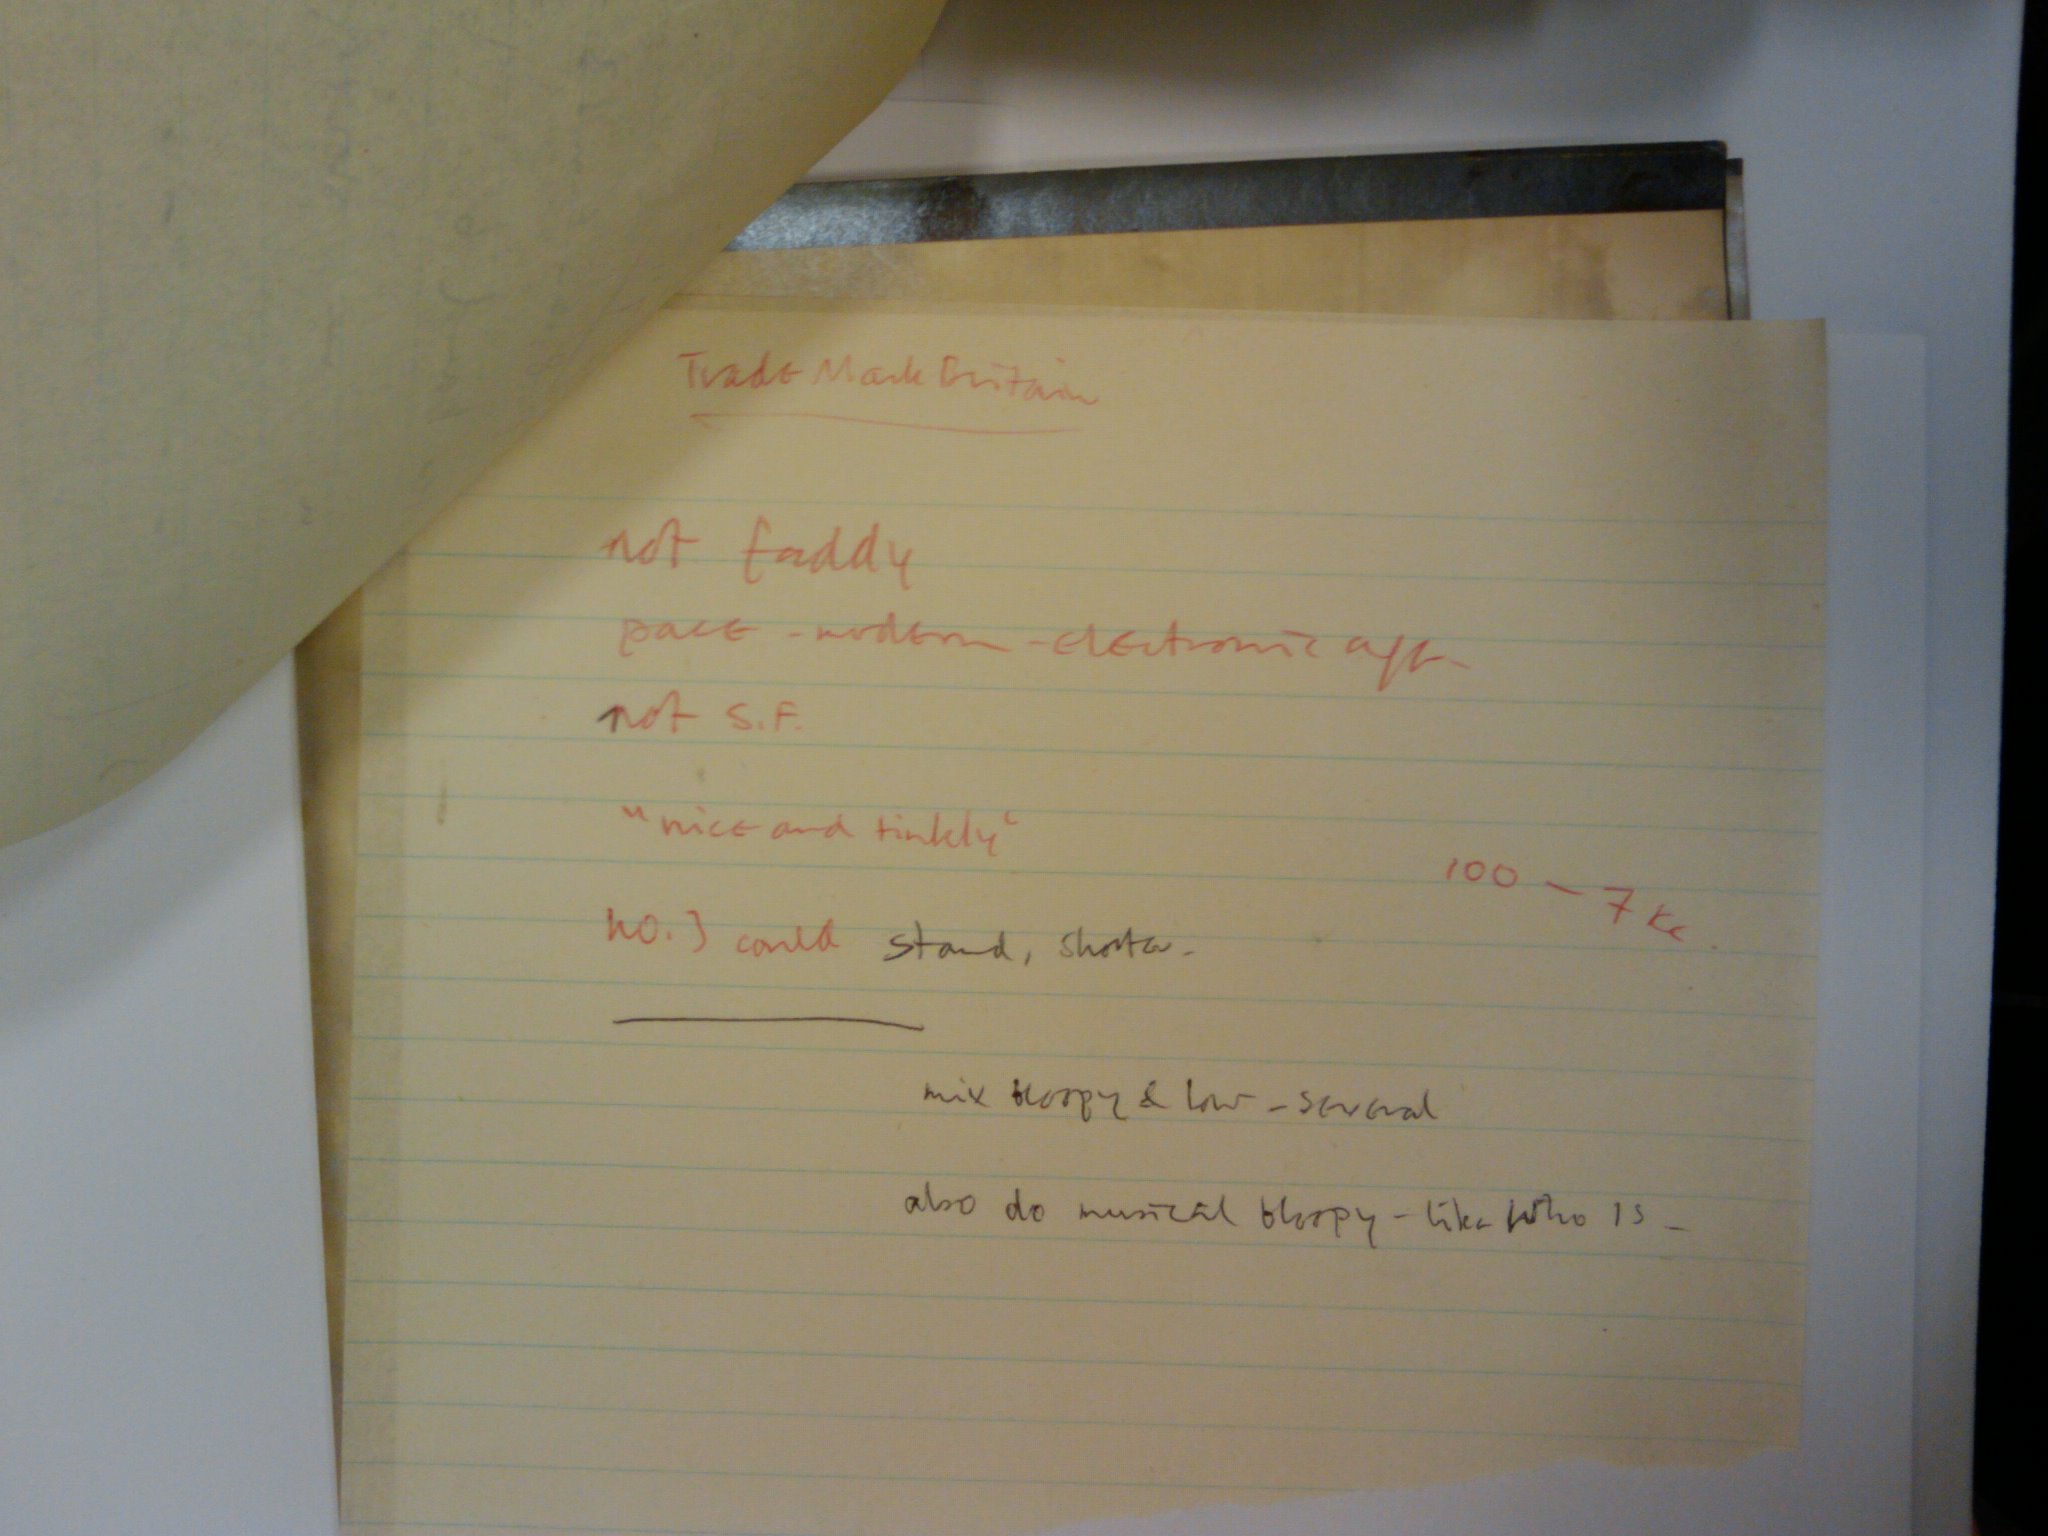 Trade Mark Britain
not faddy
pace - modern - electronic age -
not S.F.
"nice and tinkly"
100 - 7 Kc.
no. 3 could stand, shorter -
mix bloopy & low - several
also do musical bloopy - like who is -